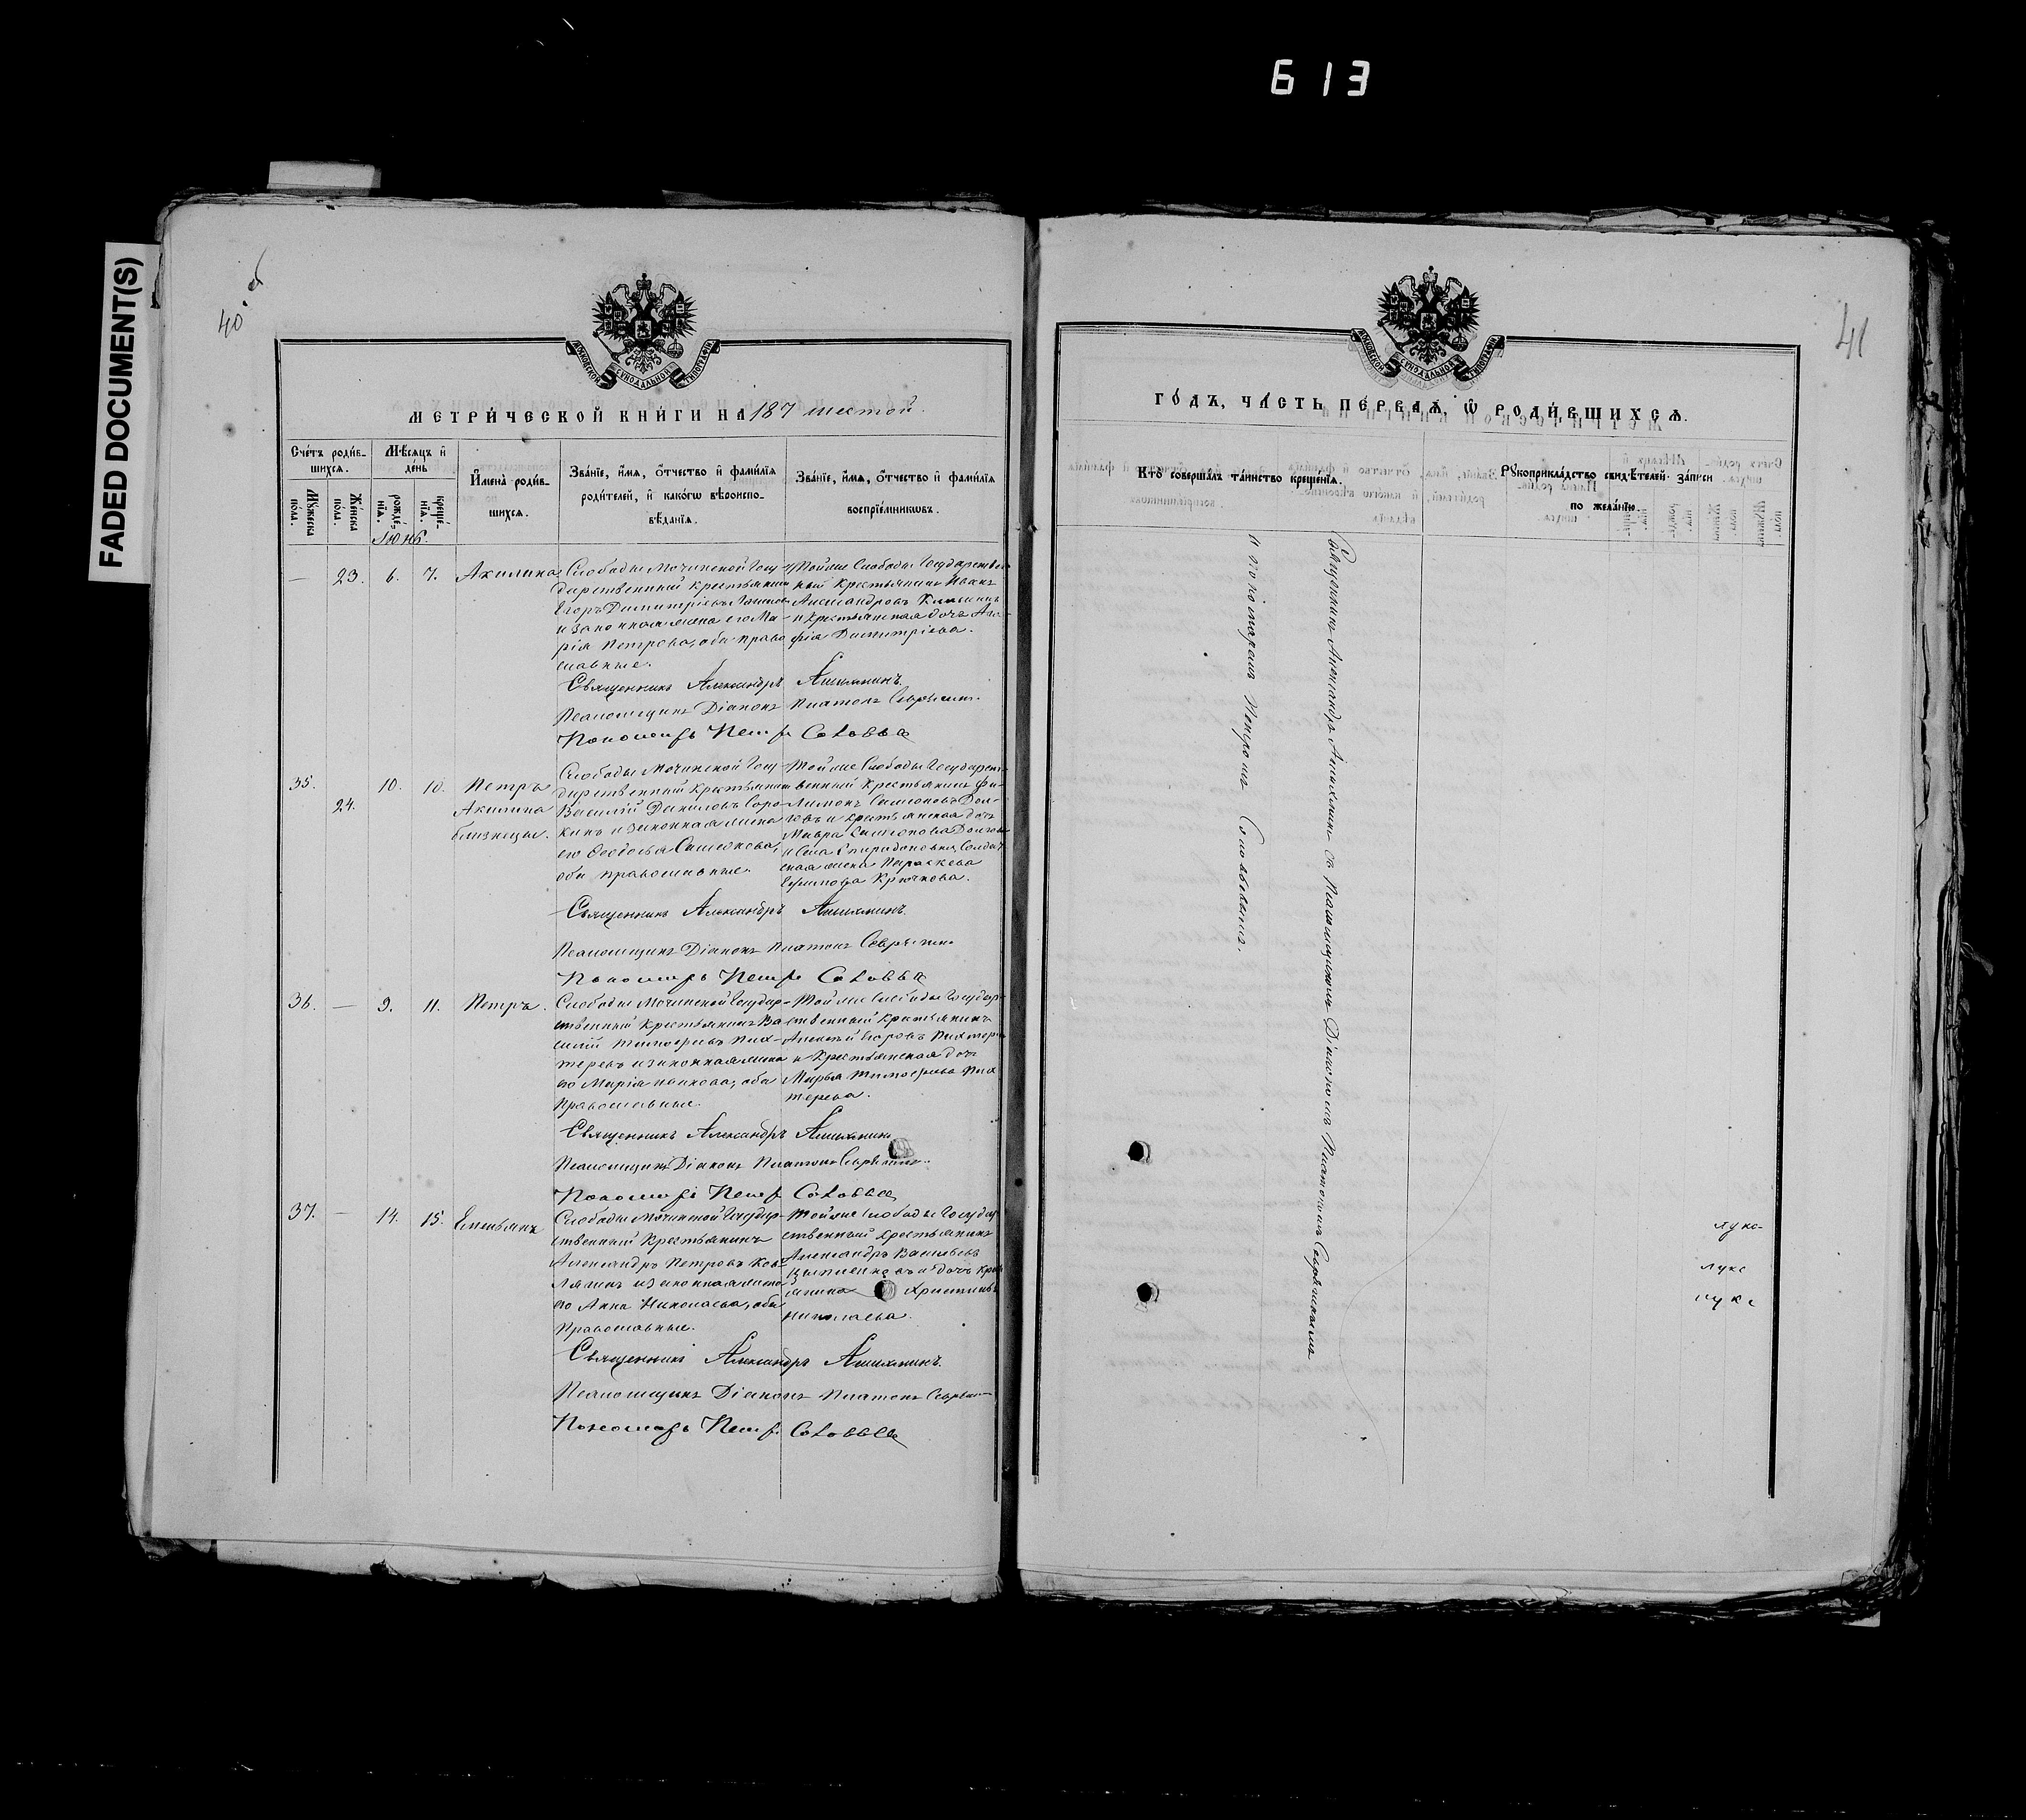 613
FADED DOCUMENT(S)
40. об
41
МОСКОВСКОЙ СѴНОДАЛЬНОЙ ТИПОГРАФІИ
МЕТРИ́ЧЕСКОЙ КНИ́ГИ НА 187 шестой.
Сче́тъ роди́в-
шихся.
Мѣ́сяцъ и҆
де́нь
Му́жеска по́ла.
Же́нска по́ла.
рожде́-
нїя.
креще́-
нїя.
И҆мена̀ роди́в-
шихся.
Зва́нїе, и҆́мя, ѻ҆́тчество и҆ фами́лїя
роди́телей, и҆ како́гѡ вѣроиспо-
вѣ́данїя.
Зва́нїе, и҆́мя, ѻ҆́тчество и҆ фами́лїя
воспрїе́мникѡвъ.
Іюнь.
— 23. 6. 7. Акилина
Слободы Мочинской Госу-
дарственный Крестьянинъ
Егоръ Димитріевъ
и законная жена его Ма-
рія Петрова, оба право
славные.
Тойже Слободы Государствен
ный Крестьянинъ Иванъ
Александровъ
и Крестьянская дочь
Димитріева.
Священникъ Александръ Ашихминъ.
Псаломщикъ Діаконъ Платонъ
Пономарь Петръ Соловьев
35. 24. 10. 10. Петръ
Акилина
близнецы.
Слободы Мочинской Госу-
дарственный Крестьянинъ
Василій Даниловъ Соро-
кинъ и законная жена
его Ѳеодосья Симеонова,
оба православные.
Тойже Слободы Государст-
венный Крестьянинъ Фи-
лимонъ Симеоновъ Дол-
говъ и крестьянская дочь
Мавра Симеонова Долгова
Спиридоновна, Солдат
ская жена Параскева
Ефимова Крючкова.
Священникъ Александръ Ашихминъ.
Псаломщикъ Діаконъ Платонъ
Пономарь Петръ Соловьев
36. — 9. 11. Петръ.
Слободы Мочинской Государ-
ственный Крестьянинъ Ва
силій Тимофеевъ Пих-
теревъ и законная жена
его Марія Иванова, оба
Православные.
Тойже Слободы Государ-
ственный Крестьянинъ
Алексѣй Егоровъ Пихтере
и Крестьянская дочь
Марья Тимофеева Пих
терева.
Священникъ Александръ Ашихминъ
Псаломщикъ Діаконъ Платонъ
Пономарь Петръ Соловьев
37. — 14. 15. Емельянъ
Слободы Мочинской Государ-
ственный Крестьянинъ
Александръ Петровъ Ков-
лягинъ и законная жена
его Анна Николаева, оба
Православные.
Тойже Слободы Государ
ственный Крестьянинъ
Александръ Васильевъ
и дочь Крест
янина Христина
Николаева.
Священникъ Александръ Ашихминъ.
Псаломщикъ Діаконъ Платонъ
Пономарь Петръ Соловьев
ГО́ДЪ, ЧА́СТЬ ПЕ́РВАЯ, Ѡ҆ РОДИ́ВШИХСЯ.
Кто̀ соверша́лъ та́инство креще́нїя.
Рꙋкоприкла́дство свидѣ́телей за́писи
по жела́нїю.
Священникъ Александръ Ашихминъ съ Псаломщикомъ Діакономъ Платономъ
и пономаремъ Петромъ Соловьевымъ.